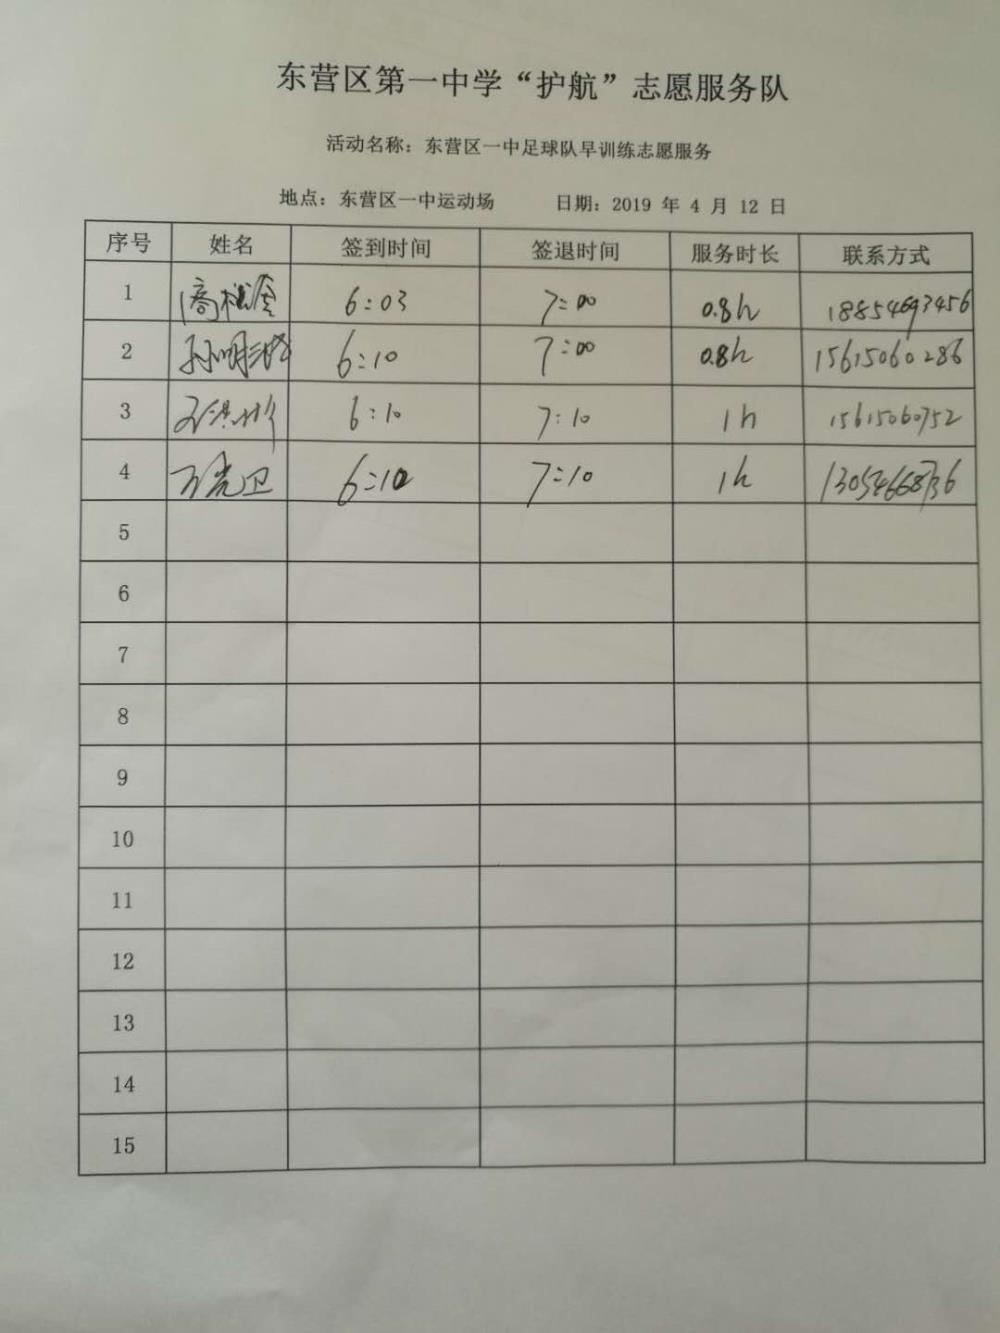 东营区第一中学“护航”志愿服务队
活动名称：东营区一中足球队早训练志愿服务
地点：东营区一中运动场 日期：2019 年 4 月 12 日
序号 姓名 签到时间 签退时间 服务时长 联系方式
1 6:03 7:00 0.8h 18854693456
2 6:10 7:00 0.8h 15615060286
3 6:10 7:10 1h 15615060752
4 6:10 7:10 1h 13054668736
5
6
7
8
9
10
11
12
13
14
15